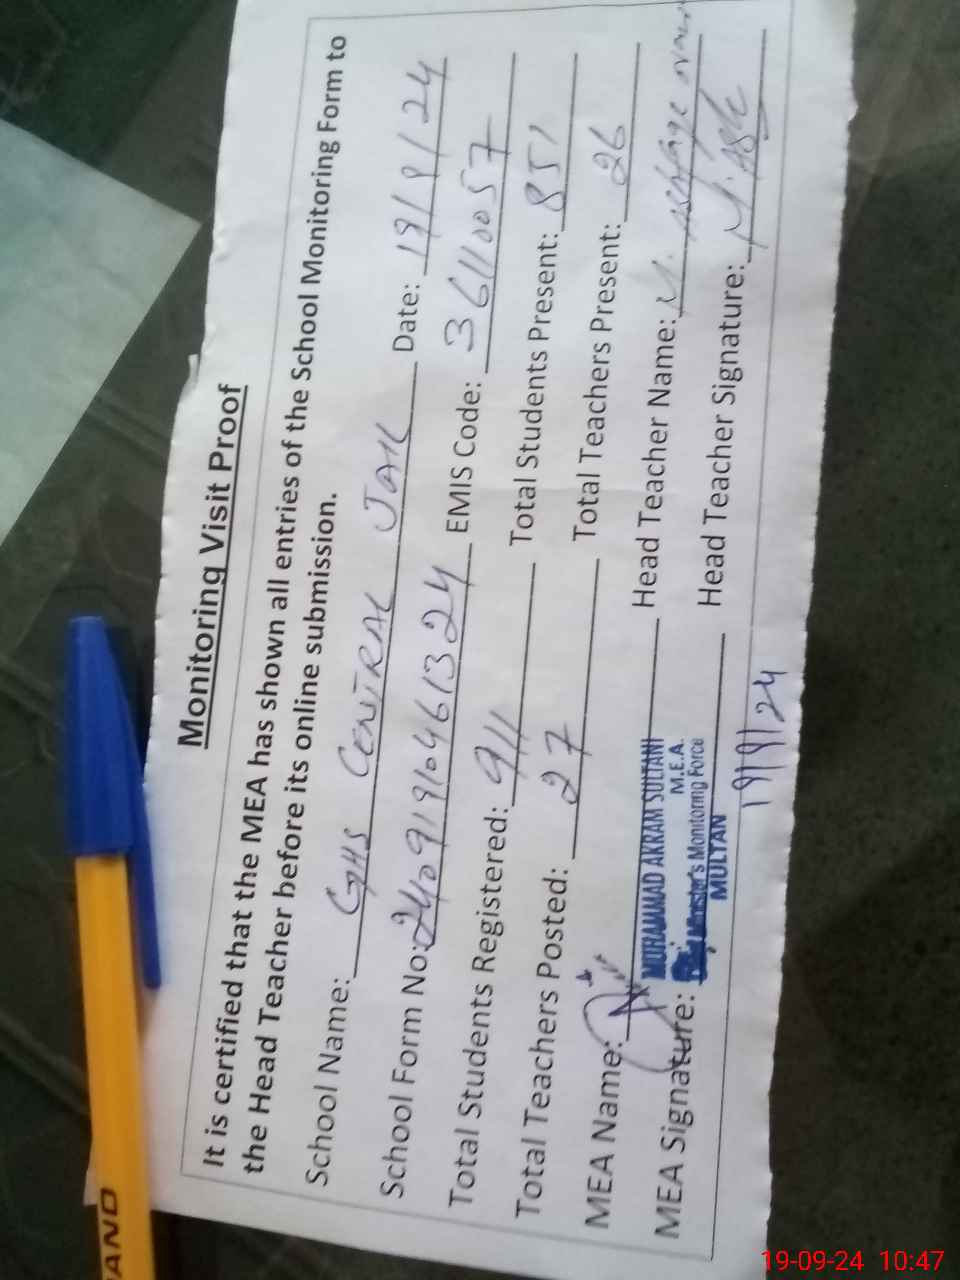 Monitoring Visit Proof
It is certified that the MEA has shown all entries of the School Monitoring Form to
the Head Teacher before its online submission.
School Name: GHS CENTRAL JAIL Date: 19/9/24
School Form No: 24091910461324 EMIS Code: 36110057
Total Students Registered: 911 Total Students Present: 851
Total Teachers Posted: 27 Total Teachers Present: 26
MEA Name: Head Teacher Name: M.
MUHAMMAD AKRAM SULTANI
M.E.A.
Minister's Monitoring Force
MULTAN
MEA Signature: Head Teacher Signature:
19/9/24
AND
19-09-24 10:47